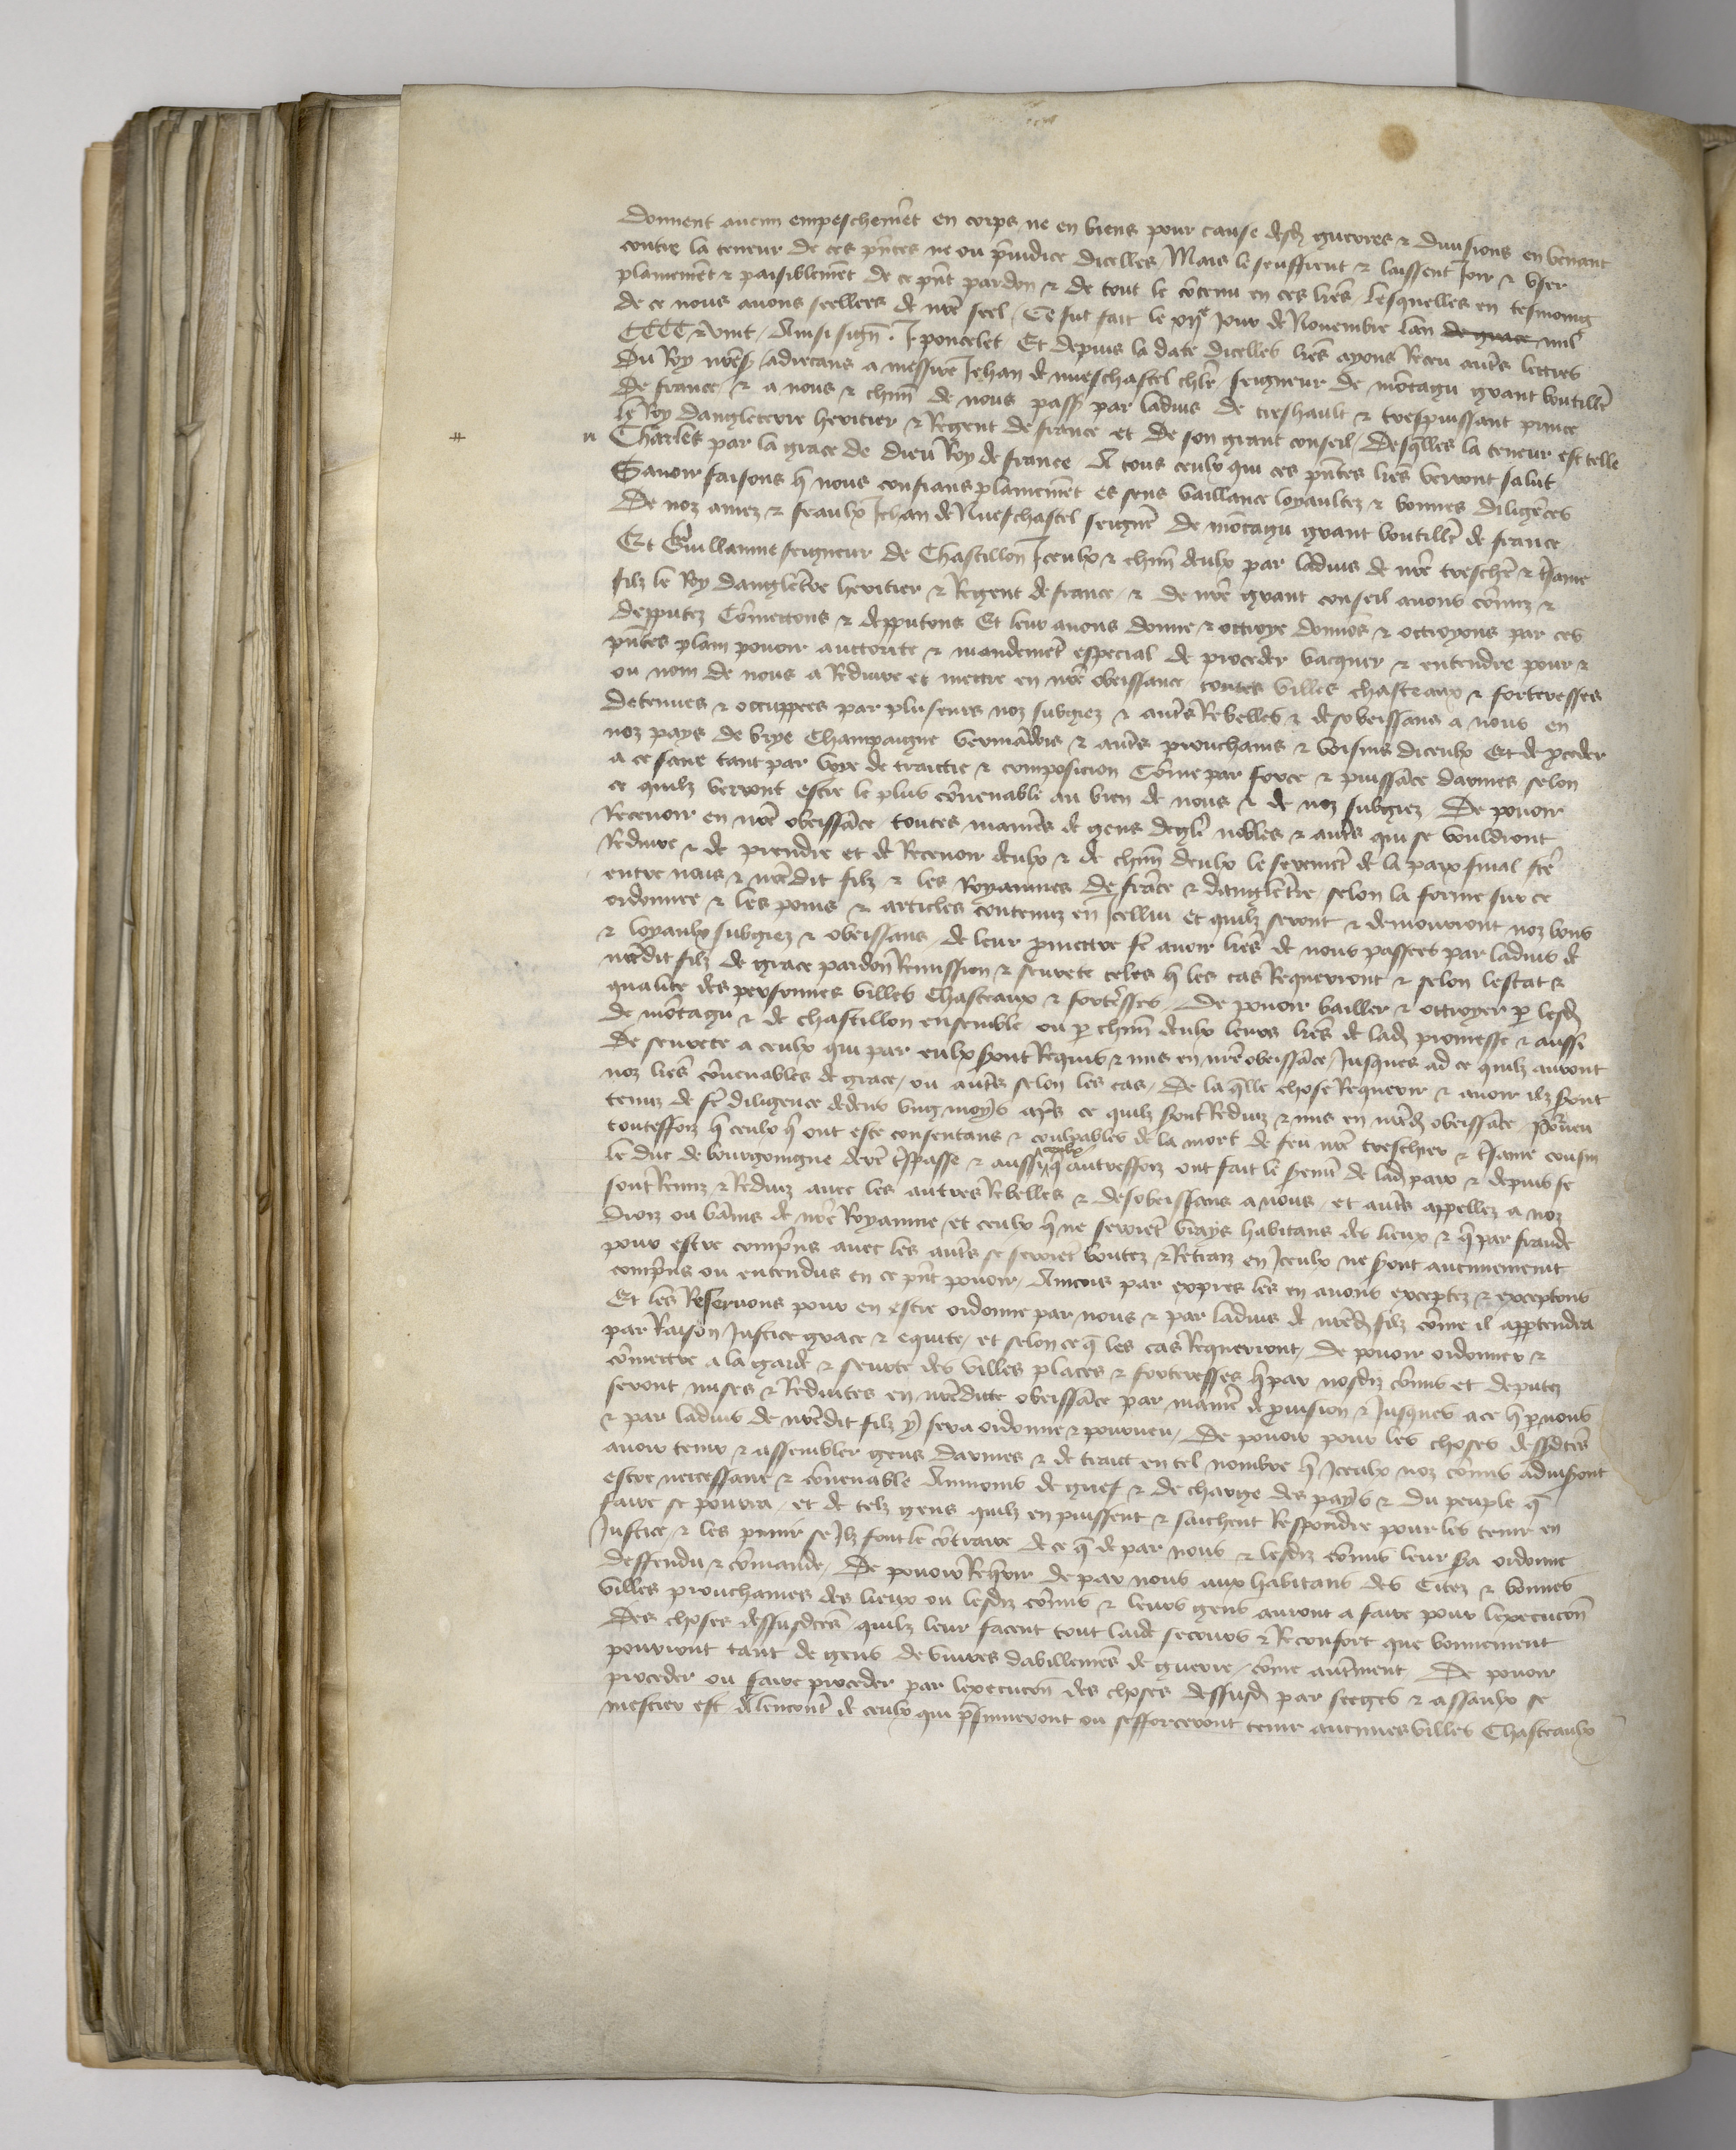 donnent aucun empeschemẽt en corps ne en biens pour cause desd guerres & diuisions en venant
contre la teneur de ces pñtes ne ou p̃iudice dicelles / Mais le seuffrent & laissent Joir & vser
plainemẽt & paisiblemẽt de ce pñt pardon & de tout le cõtenu en ces lr̃es / Lesquelles en tesmoing
de ce nous auons seellees de nr̃e seel / Ce fut fait le Jour de Nouembre lan de grace mil
CCCC & vint / Ainsi signe. J. poncelet / Et depuis la date dicelles lr̃es ayons Receu autr̃s lettres
Du Roy nr̃e s̃ / adrecans a messire Jehan de nuefchastel chl̃r seigneur de mõtagu grant boutill̃r
De france / & a nous & chũn de nous pass̃ par laduis de treshault & trespuissant prince
le Roy dangleterre heritier & Regent de france et de son grant conseil / Desq̃lles la teneur est telle
Charles par la grace de dieu Roy de france / A tous ceulx qui ces pñtes lr̃es verront salut
Sauoir faisons q̃ nous confians plainemẽt es sens vaillance loyaultez & bonnes diligẽces
De noz amez & feaulx Jehan de Nuefchastel seignr̃ de mõtagu grant boutill̃r de france
Et Guillaume seigneur de Chastillon Iceulx & chũn deulx par laduis de nr̃e treschr̃ & t̃same
filz le Roy danglet̃re heritier & Regent de france / & de nr̃e grant conseil auons cõmiz &
depputez Cõmettons & depputons Et leur auons donne & ottroye donnõs & ottroyons par ces
pñtes plain pouoir auctorite & mandemẽt especial de proceder vacquer & entendre pour &
ou nom de nous a Reduire et mettre en nr̃e obeissance toutes villes chasteaux & forteresses
detenues & occuppees par pluseurs noz subgiez & autr̃s Rebelles & desobeissans a nous en
noz pays de brye Champaigne vermãdois & autr̃s prouchains & voisins diceulx Et de p̃ceder
a ce faire tant par voye de traictie & composicion Cõme par force & puissãce darmes selon
ce quilz verront estre le plus cõuenable au bien de nous & de noz subgiez / De pouoir
Receuoir en nr̃e obeissãce toutes manier̃s de gens degl̃i nobles & autr̃s qui se vouldront
Reduire & de prendre et de Receuoir deulx & de chũn deulx le seremẽt de la paix final fc̃e
entre nous & nr̃edit filz & les Royaumes de frãce & danglet̃re / selon la forme sur ce
ordonnee & les poins & articles contenuz en Icellui et quilz seront & demourront noz bons
& loyaulx subgiez & obeissans / de leur p̃mettre fẽ auoir lr̃es de nous passees par laduis de
nr̃edit filz de grace pardon Remission & seurete telles q̃ les cas Requerront & selon lestat &
qualite des personnes villes Chasteaux & fort̃esses / De pouoir bailler & ottroyer p lesd
de mõtagu & de chastillon ensemble ou p chũn deulx leurs lr̃es de lad promesse & aussi
De seurete a ceulx qui par eulx s̃ont Requis & mis en nr̃e obeissãce / Jusques ad ce quilz auront
noz lr̃es cõuenables de grace / ou autr̃s selon les cas / De la q̃lle chose Requerir & auoir ilz s̃ont
tenuz de fẽ diligence dedens vng moys apr̃s ce quilz s̃ont Reduiz & mis en nr̃ed obeissãce / Pour̃ueu
touteffoiz q̃ ceulx q̃ ont este consentans & coulpables de la mort de feu nr̃e treschier & t̃same cousin
le duc de bourgoingne der̃e t̃spasse & aussi ceulx q̃ autreffoiz ont fait le s̃emẽt de lad paix & depuis se
sont Renuz & Reduiz auec les autres Rebelles & desobeissans a nous / et autr̃s appellez a noz
droiz ou bãnis de nr̃e Royaume / et ceulx q̃ ne seroiẽt vrays habitans des lieux & q̃ par fraude
pour estre comp̃ns auec les autr̃s se seroiẽt boutez & Retraiz en Iceulx ne s̃ont aucunement
comp̃ns ou entendus en ce pñt pouoir / Aincois par expres les en auons exceptez & exceptons
Et les Reseruons pour en estre ordonne par nous & par laduis de nr̃ed filz cõme il apptendra
par Raison Justice grace & equite / et selon ce q̃ les cas Requerront / De pouoir ordonner &
cõmettre a la garde & seurte des villes places & forteresses q̃ par nosdiz cõmis et deputez
seront mises & Reduites en nr̃edicte obeissãce par manier̃ de p̃uision & Jusques a ce q̃ p nous
& par laduis de nr̃edit filz y sera ordonne & pourueu / De pouoir pour les choses dessusdc̃es
auoir tenir & assembler gens darmes & de traict en tel nombre q̃ Iceulx noz cõmis aduis̃ont
estre neccessaire & cõuenable Aumoins de grief & de charge des pays & du peuple q̃
faire se pourra / et de telz gens quilz en puissent & saichent Respondre pour les tenir en
Justice & les punir se Ilz font le cõtraire de ce q̃ de par nous & lesdiz cõmis leur s̃a ordonne
deffendu & cõmande / De pouoir Req̃rir de par nous aux habitans des Citez & bonnes
villes prouchaines des lieux ou lesdiz cõmis & leurs gens auront a faire pour lexecucõn
des choses dessusdc̃es quilz leur facent tout laide secours & Reconfort que bonnement
pourront tant de gens de viures dabillemẽs de guerre / cõme autr̃ment De pouoir
proceder ou faire proceder par lexecucõn des choses dessusd par sieges & assaulx se
mestier est Alencontr̃ de ceulx qui p̃sumeront ou sefforceront tenir aucunes villes Chasteaulx